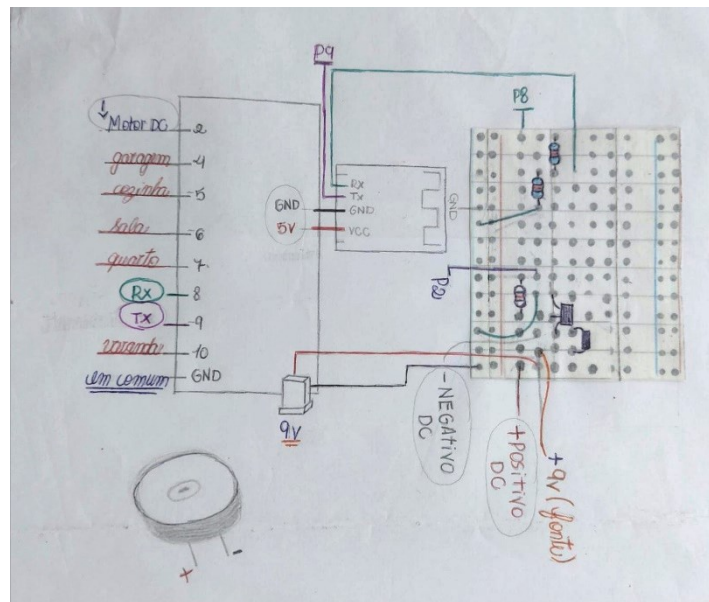 P9
P8
Motor DC 2
garagem 4
cozinha 5
sala 6
quarto 7
RX 8
TX 9
varanda 10
em comum GND
RX
TX
GND GND
5V VCC
GND
P2
9V
- NEGATIVO
DC
+ POSITIVO
DC
+ 9V (fonte)
+ -